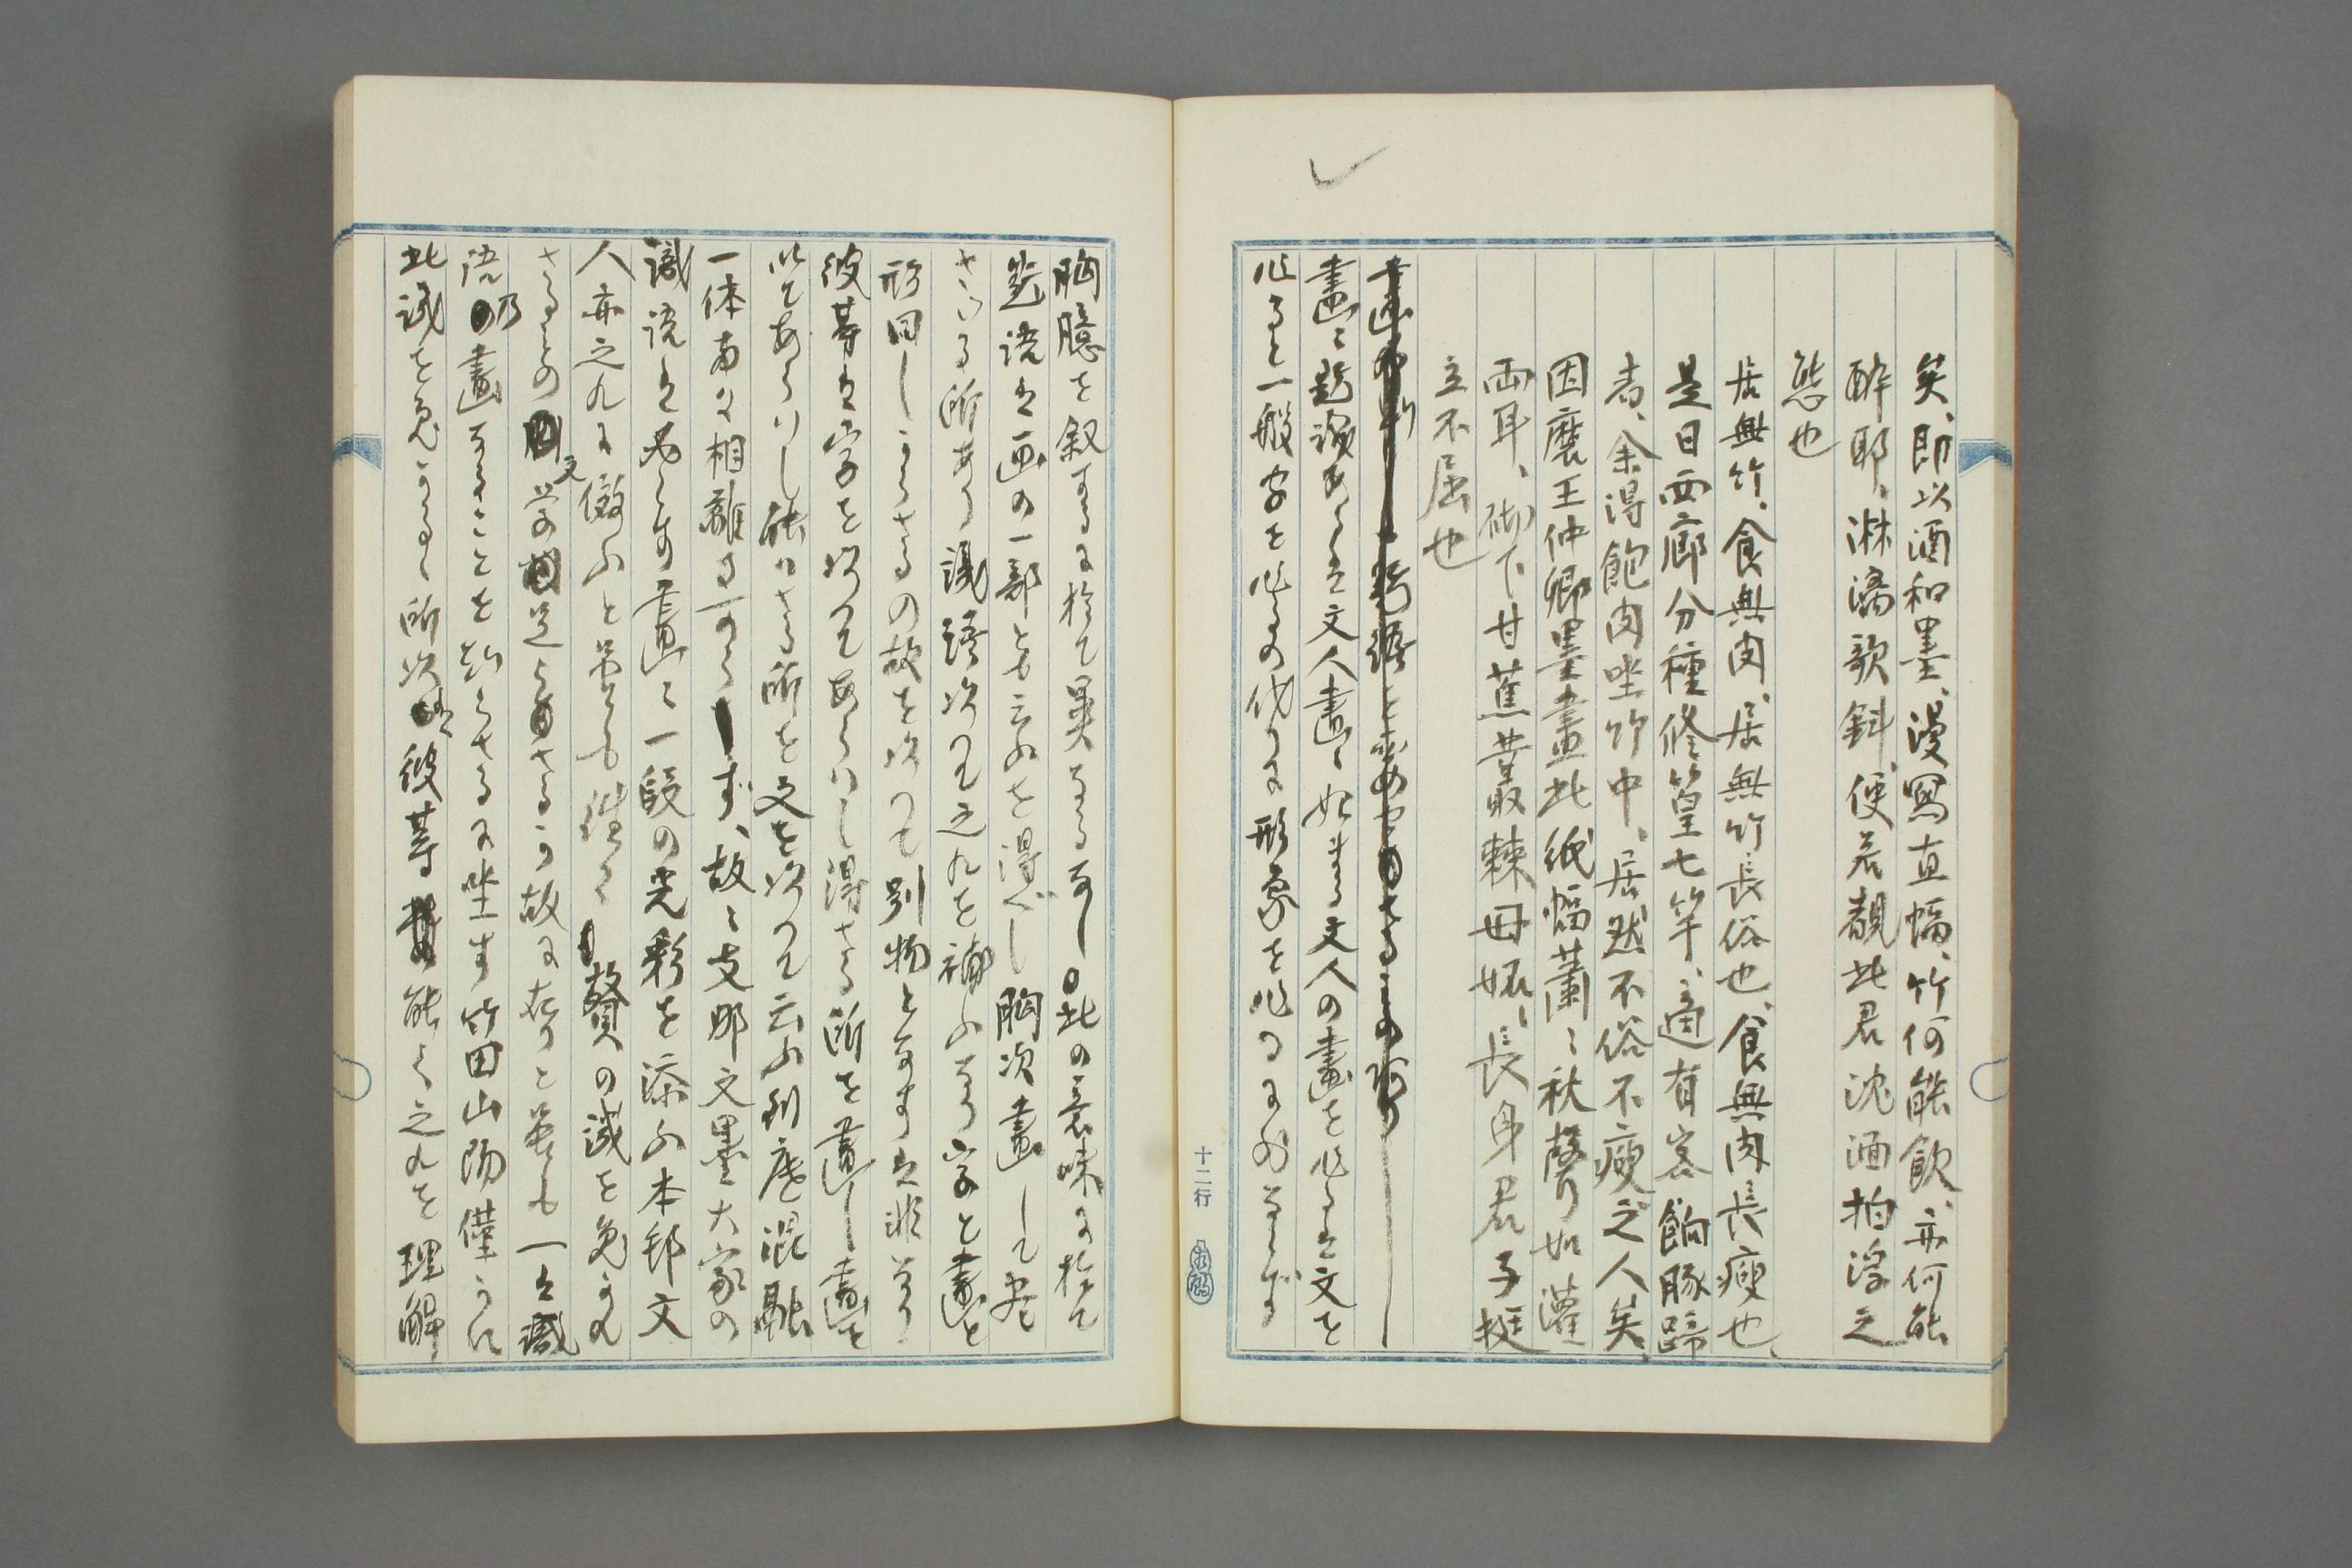 矣、即以酒和墨、漫寫直幅、竹何能飲、亦何能
酔耶、淋漓歌斜、便若覩此君沈湎拍浮之
態也
居無竹、食無肉、居無竹長俗也、食無肉長瘦也、
是日西廊分種修篁七竿、適有客餉豚蹄
者、余得飽肉坐竹中、居然不俗不瘦之人矣、
因磨王仲卿墨畫此紙幅、蕭〻秋聲如灌
両耳、砌下甘蕉叢棘毋妬、長身君子挺
立不屈也
畫に題識あるは文人畫に始まる文人の畫を作るは文を
作ると一般字を作るの代りに形象を作るに外ならず
十二行
胸臆を叙するに於て異なるなし此の意味に於て
題識は画の一部とも云ふを得べし胸次畫して尽
さゞる所あり識語次て之れを補ふなり字と畫と
形同しからさるの故を以つて別物となすは非なり
彼等は字を以つてあらハし得さる所を畫し畫を
以てあらハし能ハさる所を文を以つて云ふ到底混融
一体両々相離す可らず、故に支那文墨大家の
識語は必らず畫に一段の光彩を添ふ本邦文
人亦之れに倣ふと雖も往々贅の譏を免かれ
さるもの文学足らさるか故に在りと雖も一は識
語乃畫なることを知らさるに坐す竹田山陽僅かに
此譏を免かるゝ所以は彼等能く之れを理解